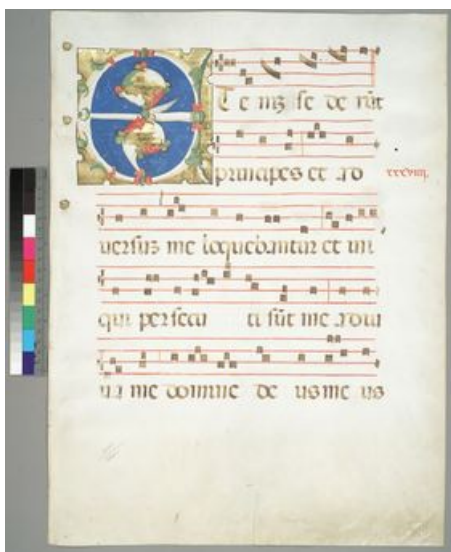 E Te nis se de rũt
principes et ad
xxxviiij.
uersus me loquebantur et ini
qui persecu ti sũt me adiu
ua me domine de us me us